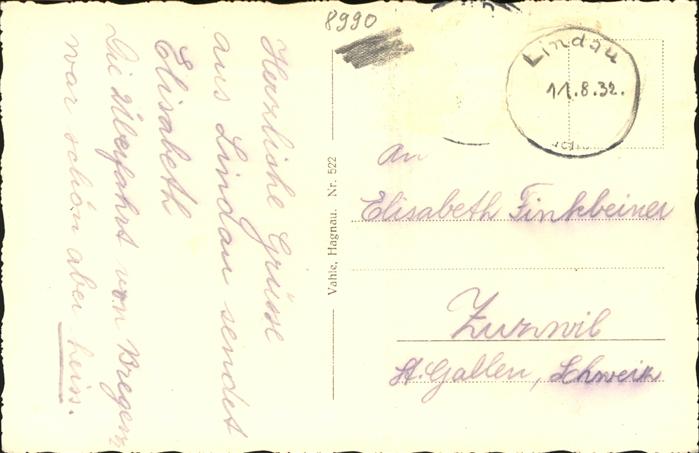 8990
Herzliche Grüsse
aus Lindau sendet
Elisabeth
Die Überfahrt von Bregenz
war schön aber heiss.
Vahle, Hagnau. Nr. 522
Lindau
11.8.32.
An
Elisabeth Finkbeiner
Zuzwil
St. Gallen, Schweiz